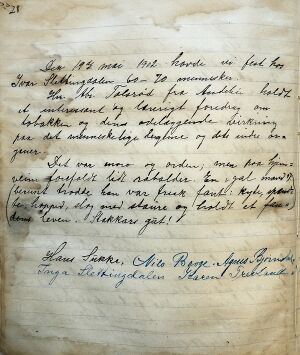 28
Den 19de mai 1912 havde vi fest hos
Ivar Slettingdalen 60-70 mennesker.
Hr. Chr. Tolsrød fra holdt
et interessant og lærerigt foredrag om
tobakken og dens ødelæggende virkning
paa det menneskelige legeme og dets indre or-
ganer.
Det var moro og orden; men paa hjem-
veien forefaldt lidt rabalder. En "gal mand"
berust trodde han var frisk fant: 
han hoppet, slog med staure og holdt et 
leven. Stakkars gut!
Hans Nils Borge. Agnes
Inga Slettingdalen Karen